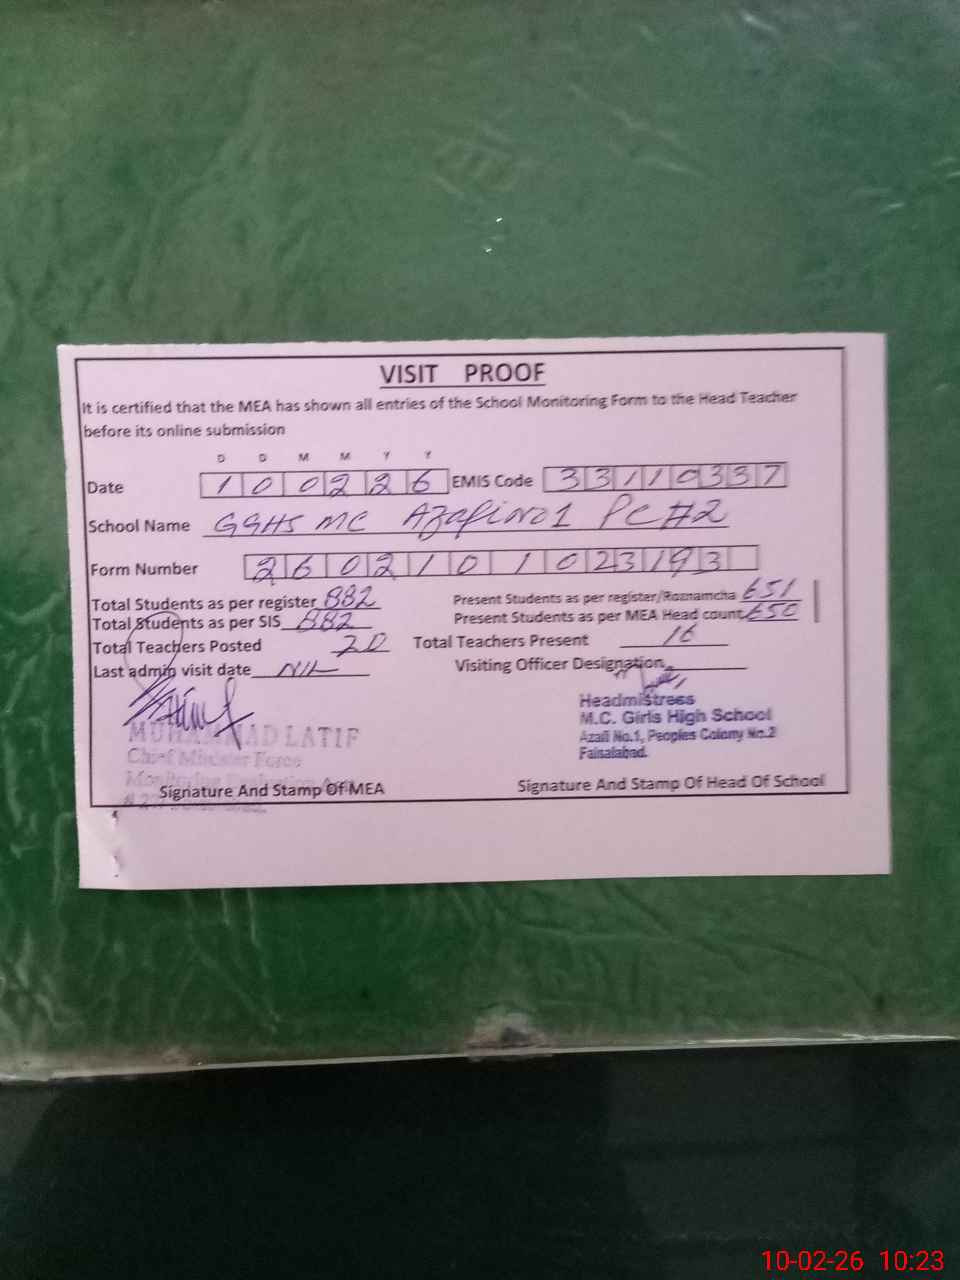 VISIT PROOF
It is certified that the MEA has shown all entries of the School Monitoring Form to the Head Teacher
before its online submission
D D M M Y Y
Date 1 0 0 2 2 6 EMIS Code 3 3 1 1 0 3 3 7
School Name GGHS MC Azafi No 1 PC #2
Form Number 2 6 0 2 1 0 1 0 2 3 1 9 3
Total Students as per register 882 Present Students as per register/Roznamcha 651
Total Students as per SIS 882 Present Students as per MEA Head count 650
Total Teachers Posted 20 Total Teachers Present 16
Last admin visit date Nil Visiting Officer Designation
Headmistress
M.C. Girls High School
Azafi No.1, Peoples Colony No.2
Faisalabad.
MUHAMMAD LATIF
Chief Minister Force
Monitoring Evaluation
Signature And Stamp Of MEA Signature And Stamp Of Head Of School
10-02-26 10:23